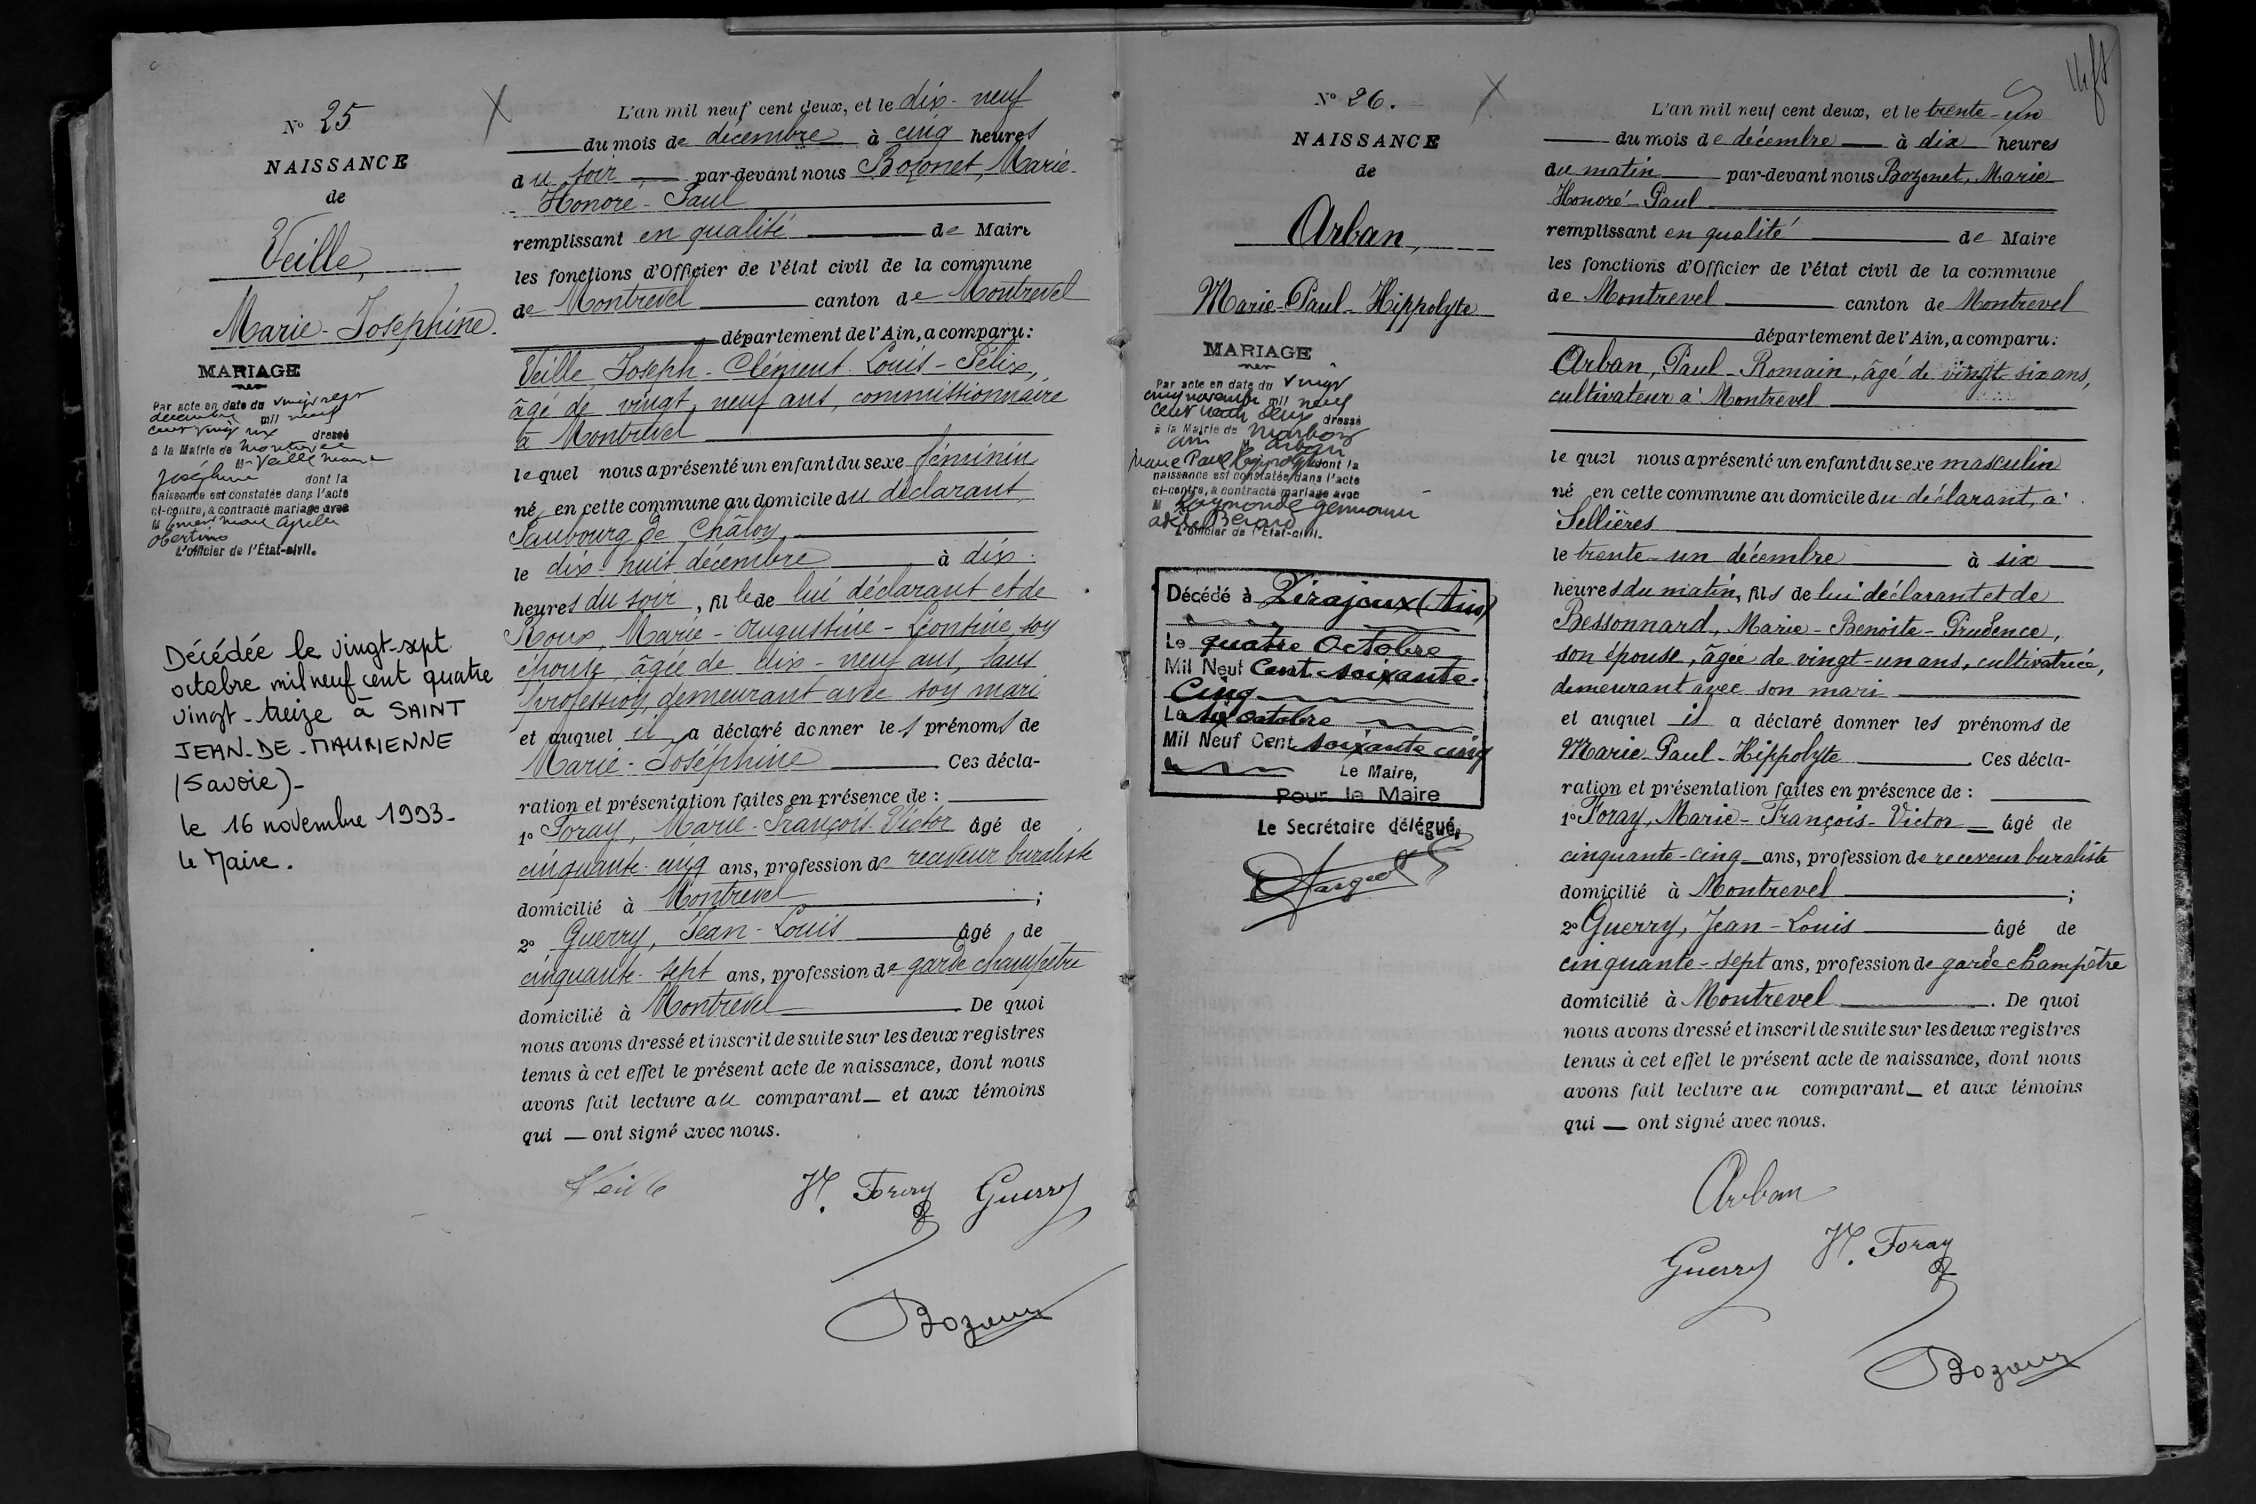 N° 25
NAISSANCE
de
Veille,
Marie-Josephine.
MARIAGE
Par acte en date du vingt sept
decembre mil neuf
cent vingt six dressé
à la Mairie de Montrevel
M Veille Marie
Joséphine dont la
naissance est constatée dans l'acte
ci-contre, a contracté mariage avec
M
L'officier de l'État-civil.
Décédée le vingt-sept
octobre mil neuf cent quatre
vingt-treize à SAINT
JEAN-DE-MAURIENNE
(Savoie)-
le 16 novembre 1993-
le Maire.
L'an mil neuf cent deux, et le dix-neuf
du mois de décembre à cinq heures
du soir par-devant nous Bozonet, Marie-
Honoré-Paul
remplissant en qualité de Maire
les fonctions d'Officier de l'état civil de la commune
de Montrevel canton de Montrevel
département de l'Ain, a comparu:
Veille, Joseph-Clément-Louis-Félix,
âgé de vingt-neuf ans, commissionnaire
à Montrevel
lequel nous a présenté un enfant du sexe féminin
né en cette commune au domicile du déclarant
Faubourg de Châlon,
le dix-huit décembre à dix
heures du soir, fille de lui déclarant et de
Roux, Marie-Augustine-Léontine, son
épouse, âgée de dix-neuf ans, sans
profession, demeurant avec son mari
et auquel il a déclaré donner les prénoms de
Marie-Joséphine Ces décla-
ration et présentation faites en présence de:
1° Foray, Marie-François-Victor âgé de
cinquante-cinq ans, profession de receveur buraliste
domicilié à Montrevel;
2° Guerry, Jean-Louis âgé de
cinquante-sept ans, profession de garde champêtre
domicilié à Montrevel. De quoi
nous avons dressé et inscrit de suite sur les deux registres
tenus à cet effet le présent acte de naissance, dont nous
avons fait lecture au comparant et aux témoins
qui ont signé avec nous.
Veille V. Foray Guerry
Bozonet
N° 26.
NAISSANCE
de
Arban,
Marie-Paul-Hippolyte
MARIAGE
Par acte en date du vingt
cinq novembre mil neuf
cent trente deux dressé
à la Mairie de Marboz
Ain M Arban
Marie Paul Hippolyte dont la
naissance est constatée dans l'acte
ci-contre, a contracté mariage avec
M Raymonde Germaine
Adèle Bérard
L'officier de l'État-civil.
Décédé à Lirajoux (Ain)
Le quatre Octobre
Mil Neuf Cent soixante-
Cinq
Le six octobre
Mil Neuf Cent soixante cinq
Le Maire,
Pour le Maire
Le Secrétaire délégué,
L'an mil neuf cent deux, et le trente-un
du mois de décembre à dix heures
du matin par-devant nous Bozonet, Marie
Honoré-Paul
remplissant en qualité de Maire
les fonctions d'Officier de l'état civil de la commune
de Montrevel canton de Montrevel
département de l'Ain, a comparu:
Arban, Paul-Romain, âgé de vingt-six ans,
cultivateur à Montrevel
lequel nous a présenté un enfant du sexe masculin
né en cette commune au domicile du déclarant, à
Sellières
le trente-un décembre à six
heures du matin, fils de lui déclarant et de
Bessonnard, Marie-Benoite-Prudence,
son épouse, âgée de vingt-un ans, cultivatrice,
demeurant avec son mari
et auquel il a déclaré donner les prénoms de
Marie-Paul-Hippolyte. Ces décla-
ration et présentation faites en présence de:
1° Foray, Marie-François-Victor âgé de
cinquante-cinq ans, profession de receveur buraliste
domicilié à Montrevel;
2° Guerry, Jean-Louis âgé de
cinquante-sept ans, profession de garde champêtre
domicilié à Montrevel. De quoi
nous avons dressé et inscrit de suite sur les deux registres
tenus à cet effet le présent acte de naissance, dont nous
avons fait lecture au comparant et aux témoins
qui ont signé avec nous.
Arban
Guerry V. Foray
Bozonet